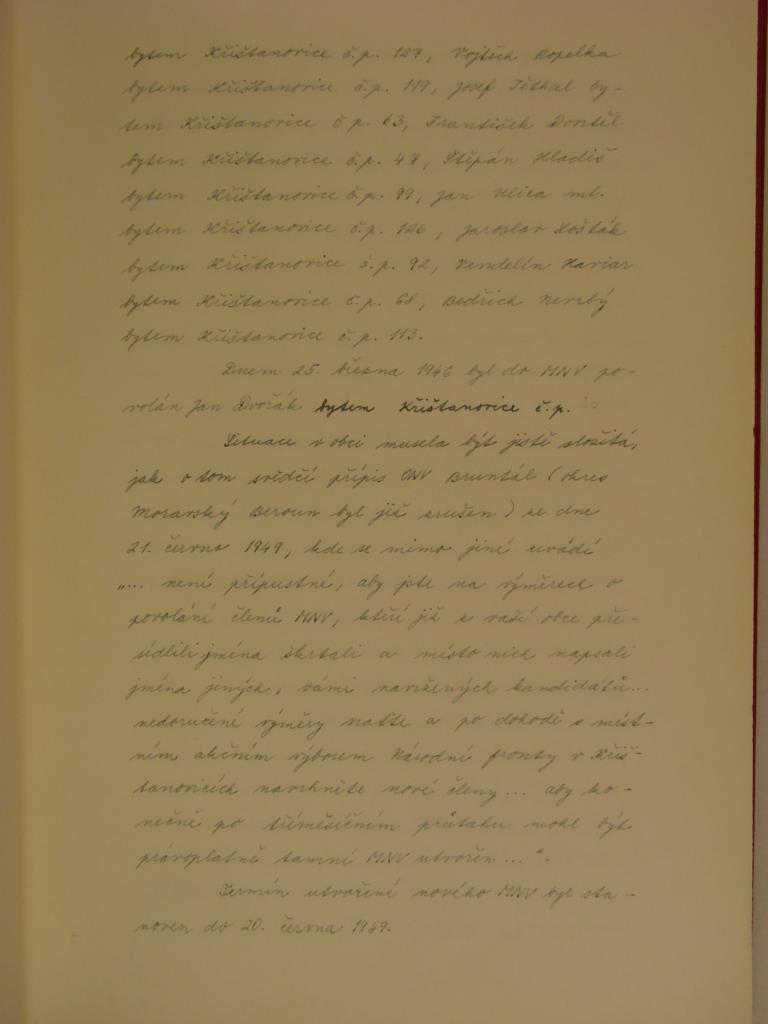 bytem Křišťanovice č.p. 129, Vojtěch Kopelka
bytem Křišťanovice č.p. 119, Josef by-
tem Křišťanovice č p. 63, František
bytem Křišťanovice č.p. 47, Štěpán Hladiš
bytem Křišťanovice č.p. 99, Jan Ulica ml.
bytem Křišťanovice č.p. 126, Jaroslav Košťák
bytem Křišťanovice č.p. 92, Vendelín
bytem Křišťanovice č.p. 68, Bedřich
bytem Křišťanovice č.p. 113.
Dnem 25. března 1946 byl do MNV po-
volán Jan Dvořák bytem Křišťanovice č.p.
Situace v obci musela být jistě složitá,
jak o tom svědčí přípis ONV Bruntál (okres
Moravský Beroun byl již zrušen) ze dne
21. června 1949, kde se mimo jiné uvádí
„... není přípustné, aby jste na výměrech o
povolání členů MNV, kteří již z vaší obce pře-
sídlili jména škrtali a místo nich napsali
jména jiných, vámi navržených kandidátů...
nedoručené výměry vraťte a po dohodě s míst-
ním akčním výborem Národní fronty v Křiš-
ťanovicích navrhněte nové členy... aby ko-
nečně po tříměsíčním průtahu mohl být
právoplatně tamní MNV utvořen...".
Termín utvoření nového MNV byl sta-
noven do 20. června 1949.